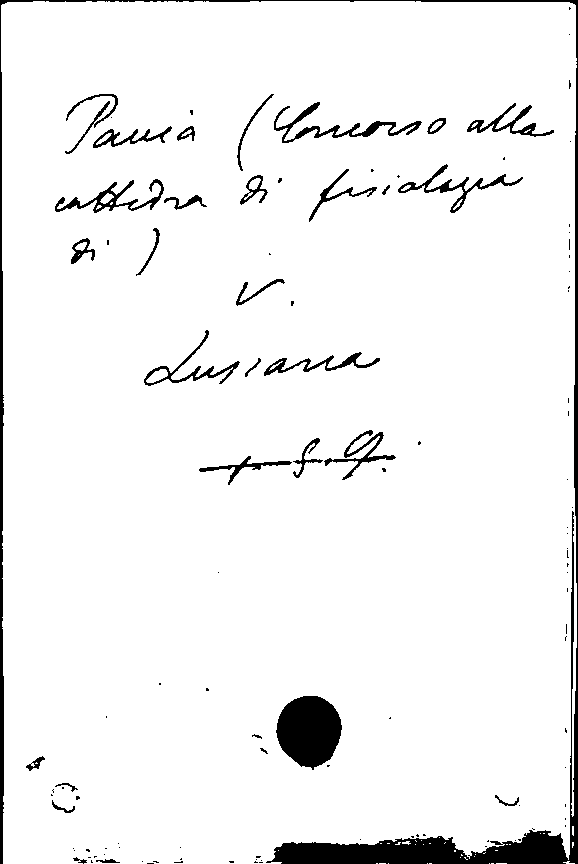 Pavia (Concorso alla
cattedra di fisiologia
di)
V.
Lussana